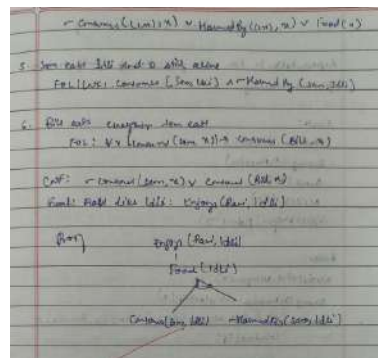 ¬ Consumes((nn), x) ∨ HarmedBy((nn), x) ∨ Food(x)
5. Sam eats Idli and is still alive
FOL/CNF: Consumes (Sam, Idli) ∧ ¬HarmedBy (Sam, Idli)
6. Bill eats everything Sam eats
FOL: ∀x Consumes(Sam, x) → Consumes (Bill, x)
CNF: ¬ Consumes(Sam, x) ∨ Consumes (Bill, x)
Goal: Ravi likes Idli: Enjoys(Ravi, Idli)
Proof
Enjoys (Ravi, Idli)
Food (Idli)
Consumes(Sam, Idli) ¬HarmedBy(Sam, Idli)